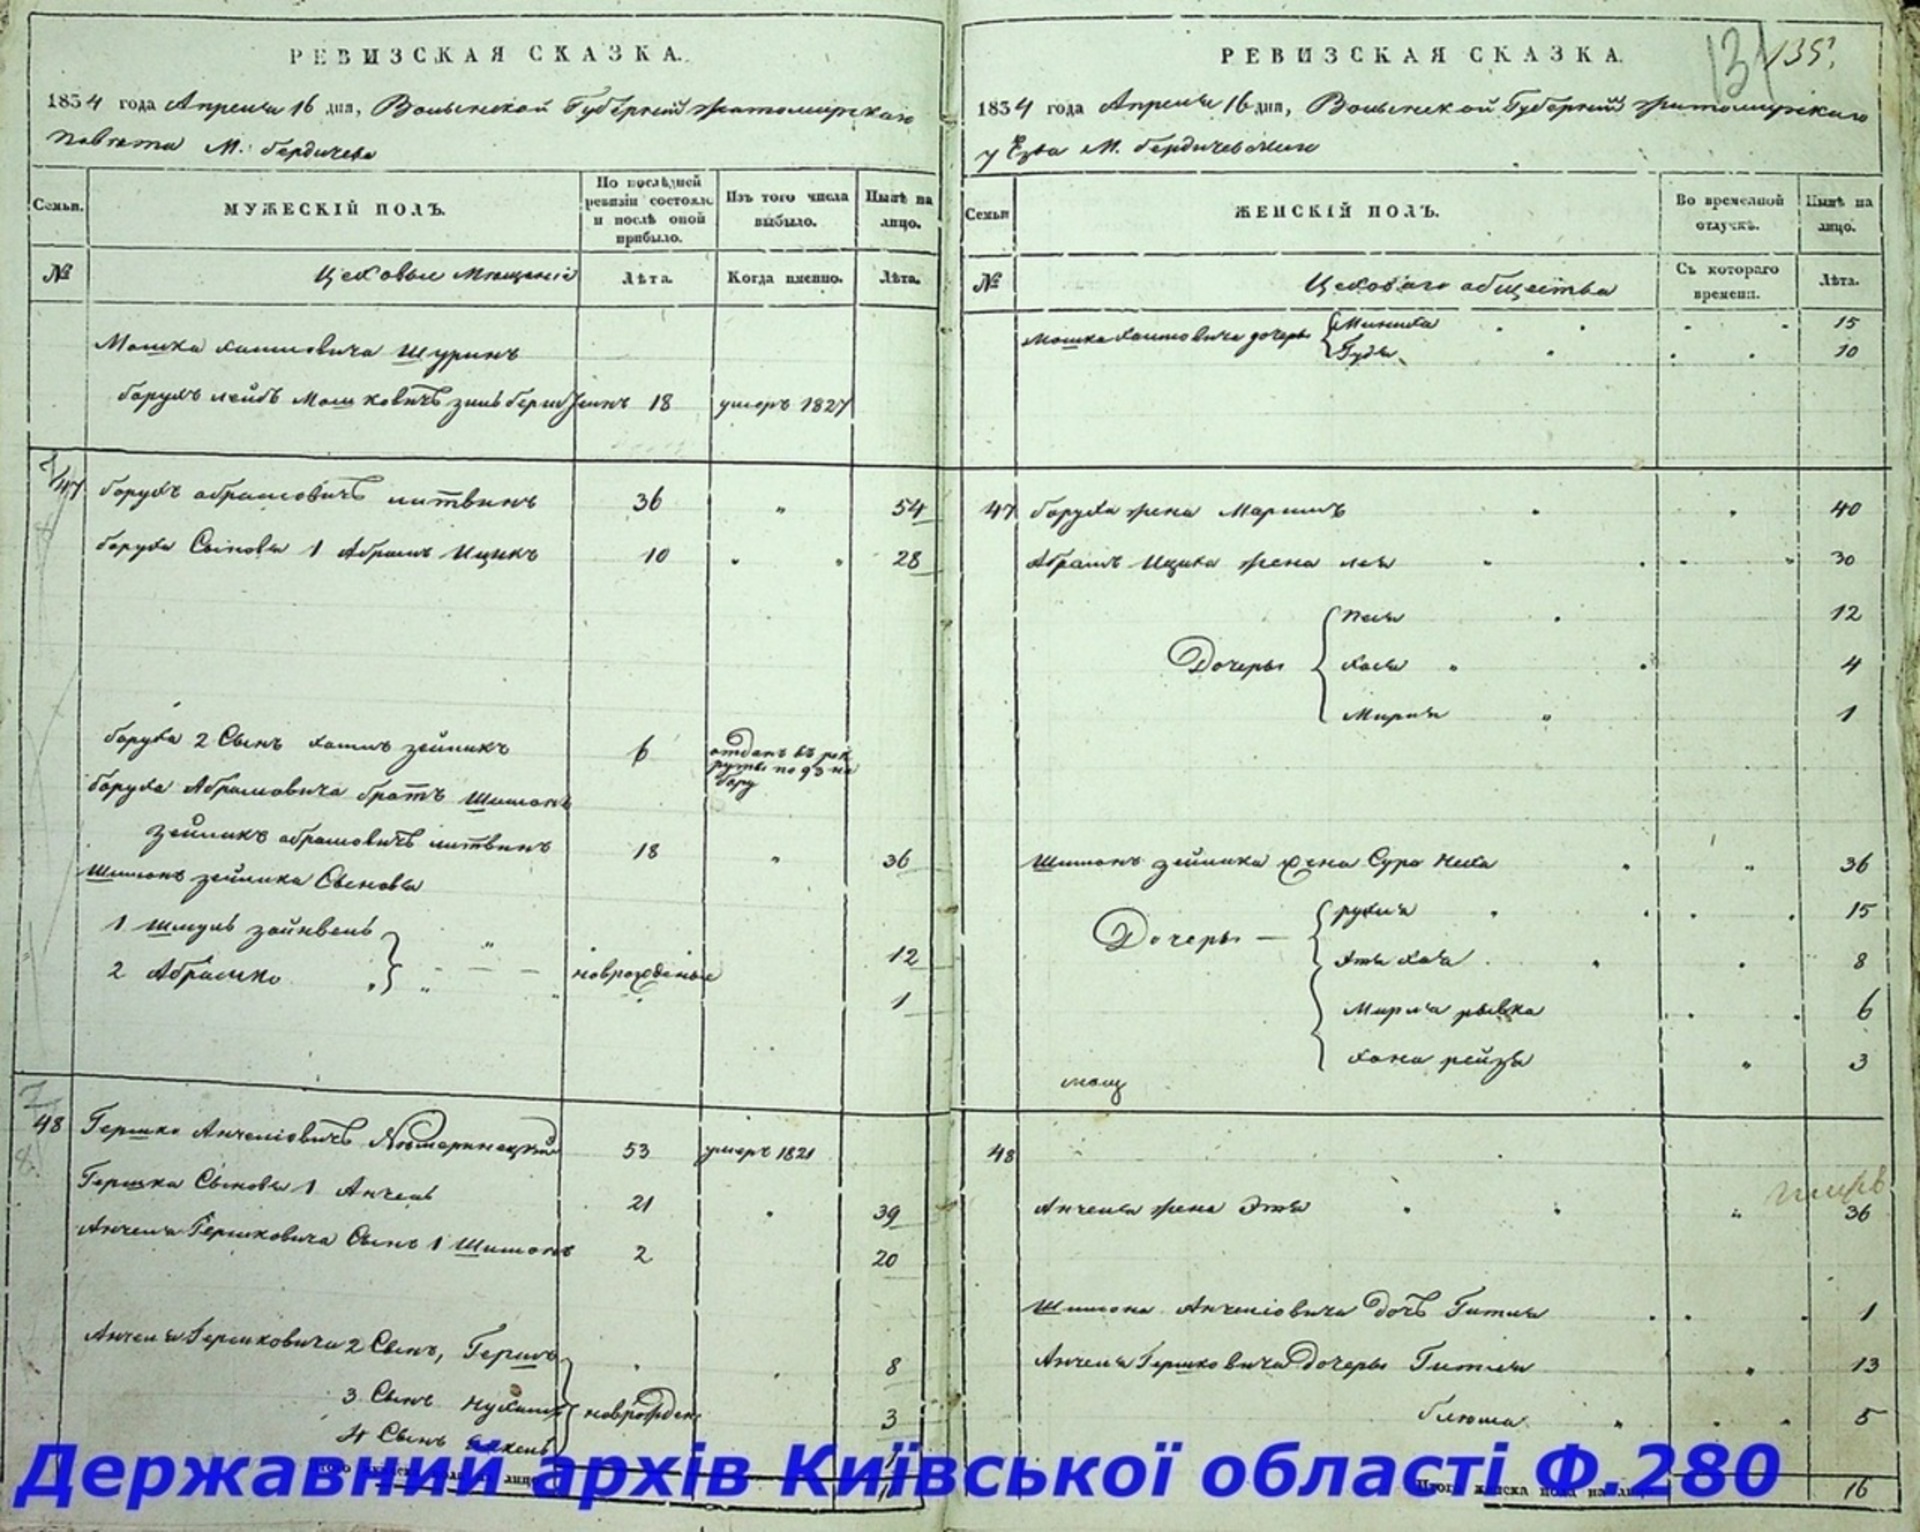 РЕВИЗСКАЯ СКАЗКА.
1834 года Апреля 16 дня, Волынской Губернии Житомирского
Повета М. Бердичева
Семьи. МУЖЕСКІЙ ПОЛЪ. По послѣдней ревизіи состояло и послѣ оной прибыло. Изъ того числа выбыло. Нынѣ на лицо.
№ Цеховые Мещане Лѣта. Когда именно. Лѣта.
Мошка Хаимовича Шуринъ
Борухъ Лейбъ Мошковичъ 18 умеръ 1827
47 Борухъ Абрамовичъ Литвинъ 36 54
Боруха Сыновья 1 Абрамъ Ицикъ 10 28
Боруха 2 Сынъ Хаимъ Зейликъ 6 отданъ въ рекруты по 93 набору
Боруха Абрамовича братъ Шимонъ
Зейликъ Абрамовичъ Литвинъ 18 36
Шимонъ Зейлика Сыновья
1 Шмуль Зайнвель 12
2 Абрамко новрожденые 1
48 Гершко Анчелiовичъ 53 умеръ 1821
Гершка Сыновья 1 Анчель 21 39
Анчеля Гершковича Сынъ 1 Шимонъ 2 20
Анчеля Гершковича 2 Сынъ, Гершъ 8
3 Сынъ Нухимъ новрожден 3
4 Сынъ
РЕВИЗСКАЯ СКАЗКА.
135
1834 года Апреля 16 дня, Волынской Губернии Житомирского
уезда М. Бердичева
Семьи ЖЕНСКІЙ ПОЛЪ. Во временной отлучкѣ. Нынѣ на лицо.
№ Цехового общества Съ котораго времени. Лѣта.
Мошка Хаимовича дочеры Миниха 15
Гудя 10
47 Боруха жена Маримъ 40
Абрамъ Ицика жена Лея 30
Песя 12
Дочеры Хася 4
Мирля 1
Шимонъ Зейлика жена Сура Неха 36
Рухля 15
Дочеры Хая 8
Мирля Рывка 6
Хана Рейзя 3
48
Анчеля жена Этя 36
Шимона Анчелiовича дочъ Гитля 1
Анчеля Гершковича дочеры Гитля 13
Блюма 5
Итого женска пола на лицо 16
Державний архів Київської області Ф.280